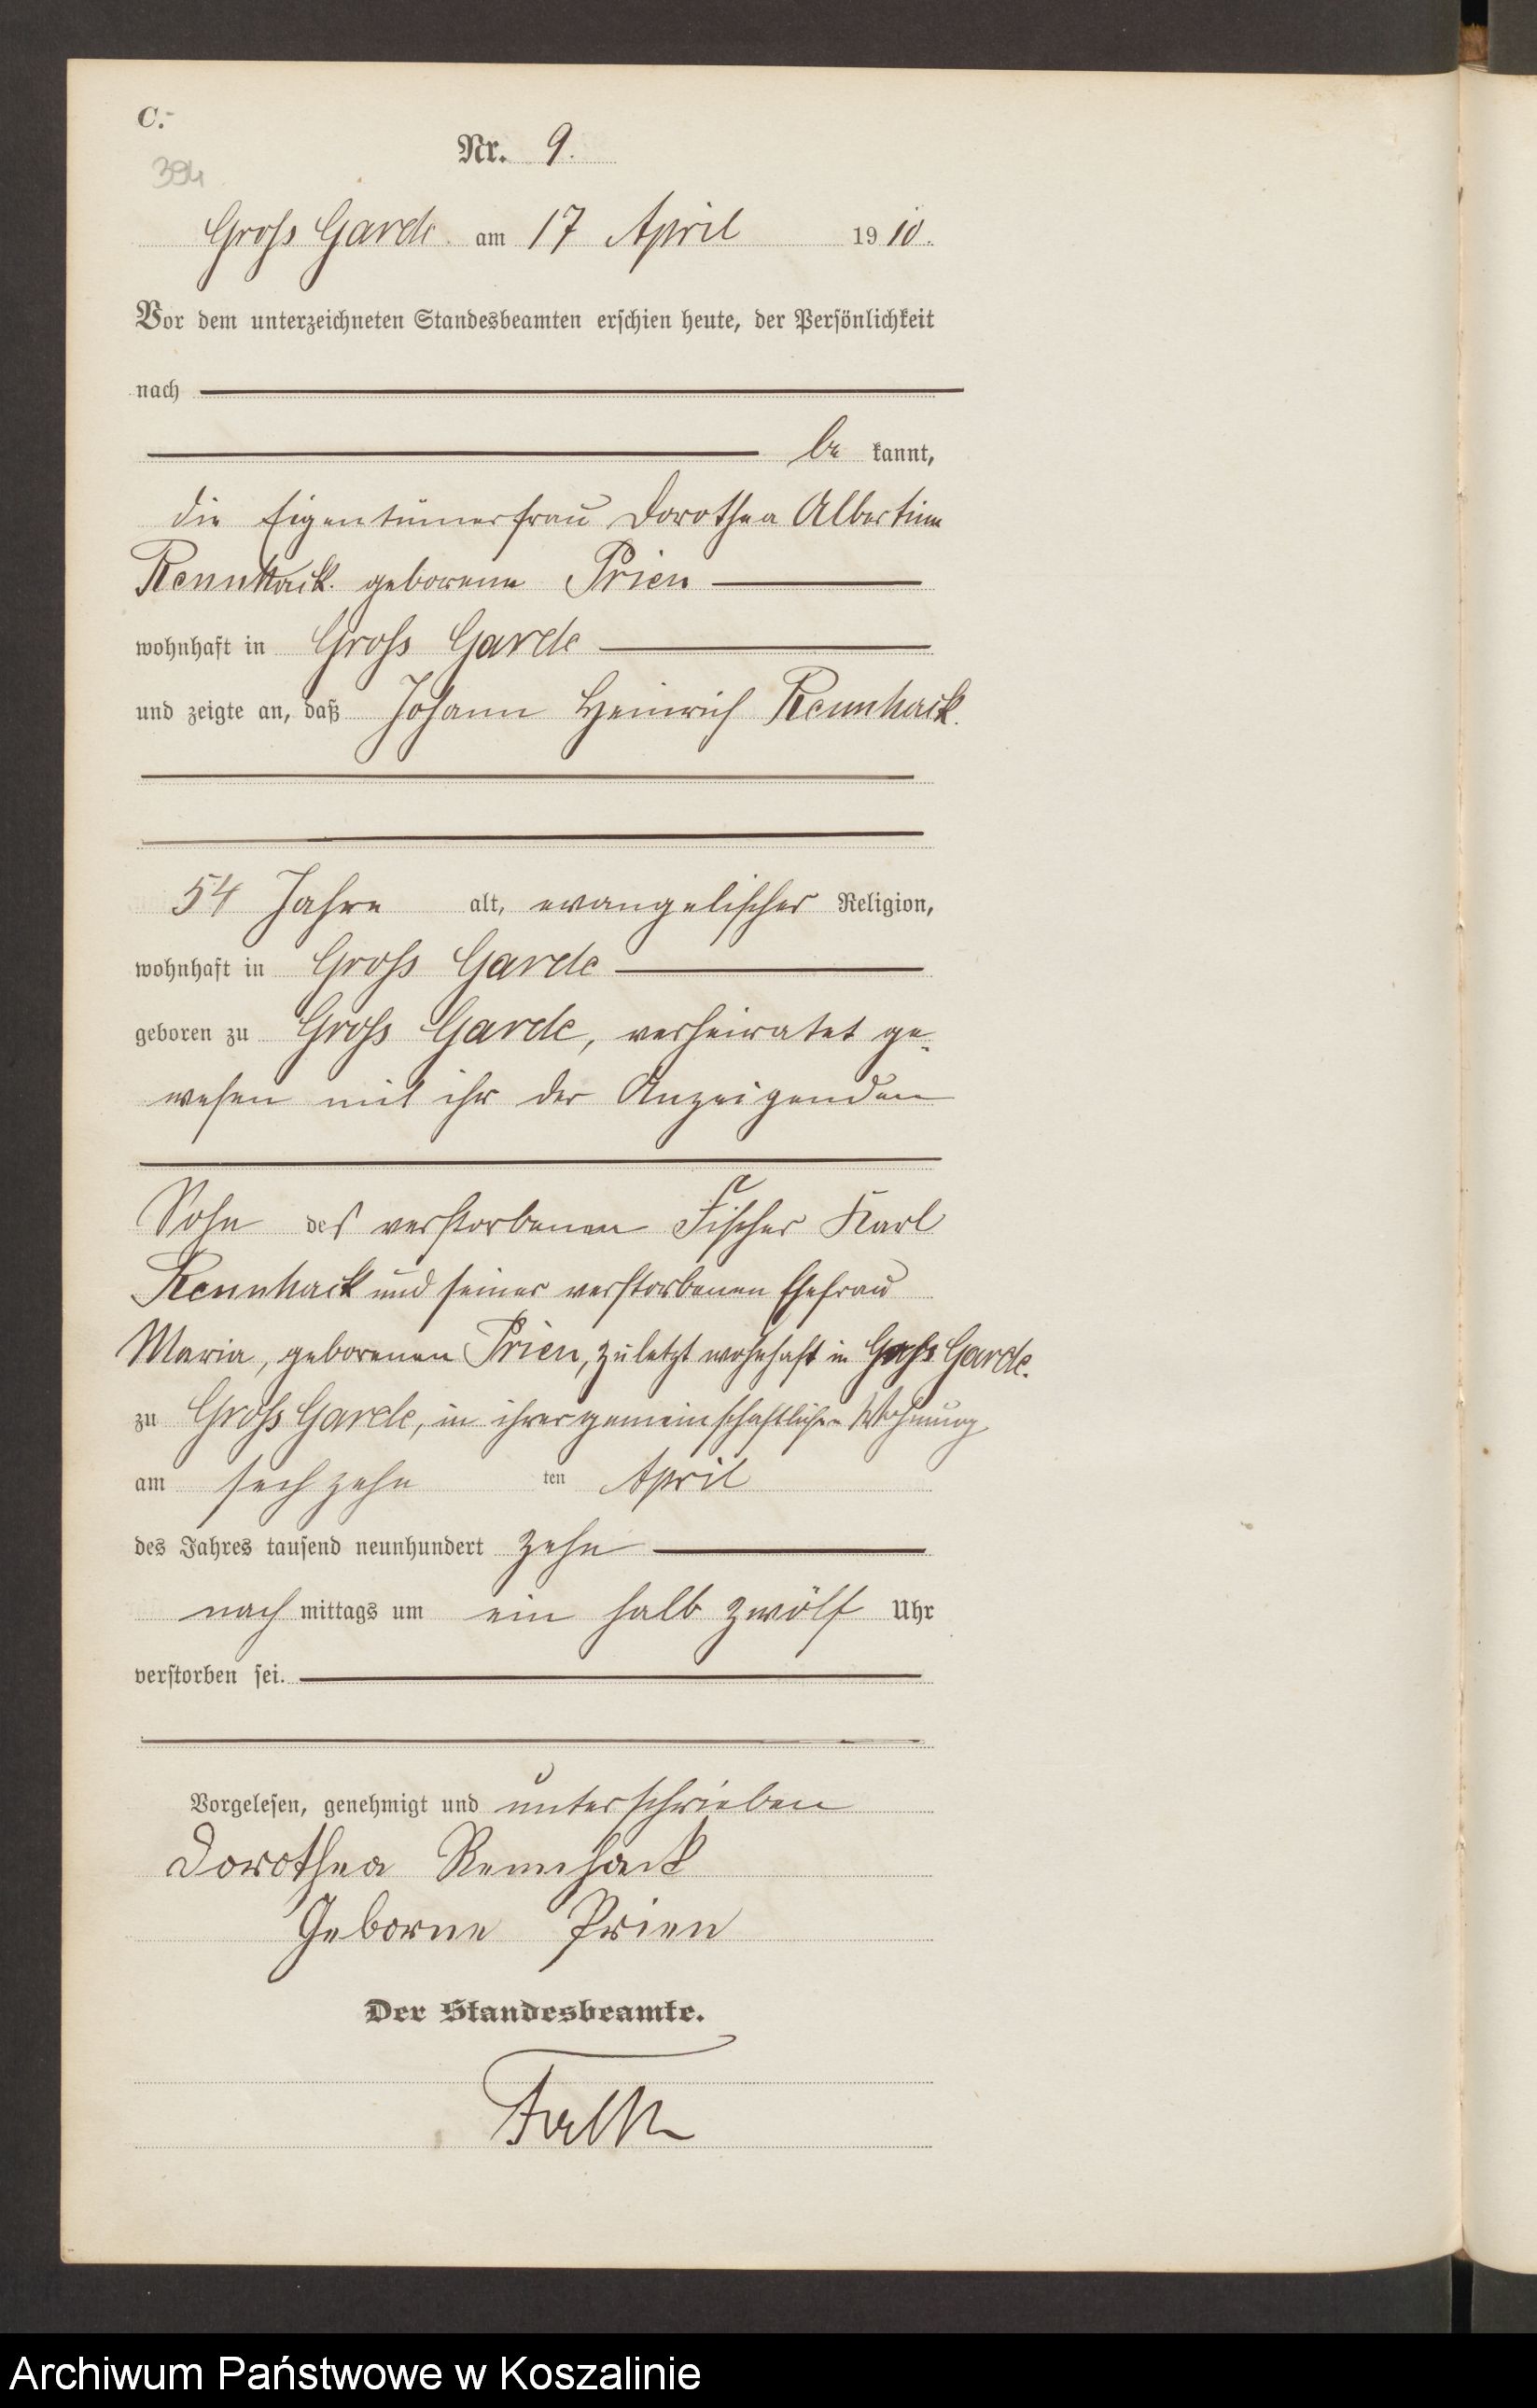 C.
394
Nr. 9.
Groß Garde am 17 April 1910.
Vor dem unterzeichneten Standesbeamten erschien heute, der Persönlichkeit
nach
be kannt,
die Eigentümerfrau Dorothea Albertine
Rennhack geborene Prien
wohnhaft in Groß Garde
und zeigte an, daß Johann Heinrich Rennhack.
54 Jahre alt, evangelischer Religion,
wohnhaft in Groß Garde
geboren zu Groß Garde, verheiratet ge-
wesen mit ihr der Anzeigenden
Sohn des verstorbenen Fischer Karl
Rennhack und seiner verstorbenen Ehefrau
Maria, geborenen Prien, zuletzt wohnhaft in Groß Garde.
zu Groß Garde, in ihrer gemeinschaftlichen Wohnung
am sechzehn ten April
des Jahres tausend neunhundert zehn
nach mittags um ein halb zwölf Uhr
verstorben sei.
Vorgelesen, genehmigt und unterschrieben
Dorothea Rennhack
Geborne Prien
Der Standesbeamte.
Falk
Archiwum Państwowe w Koszalinie